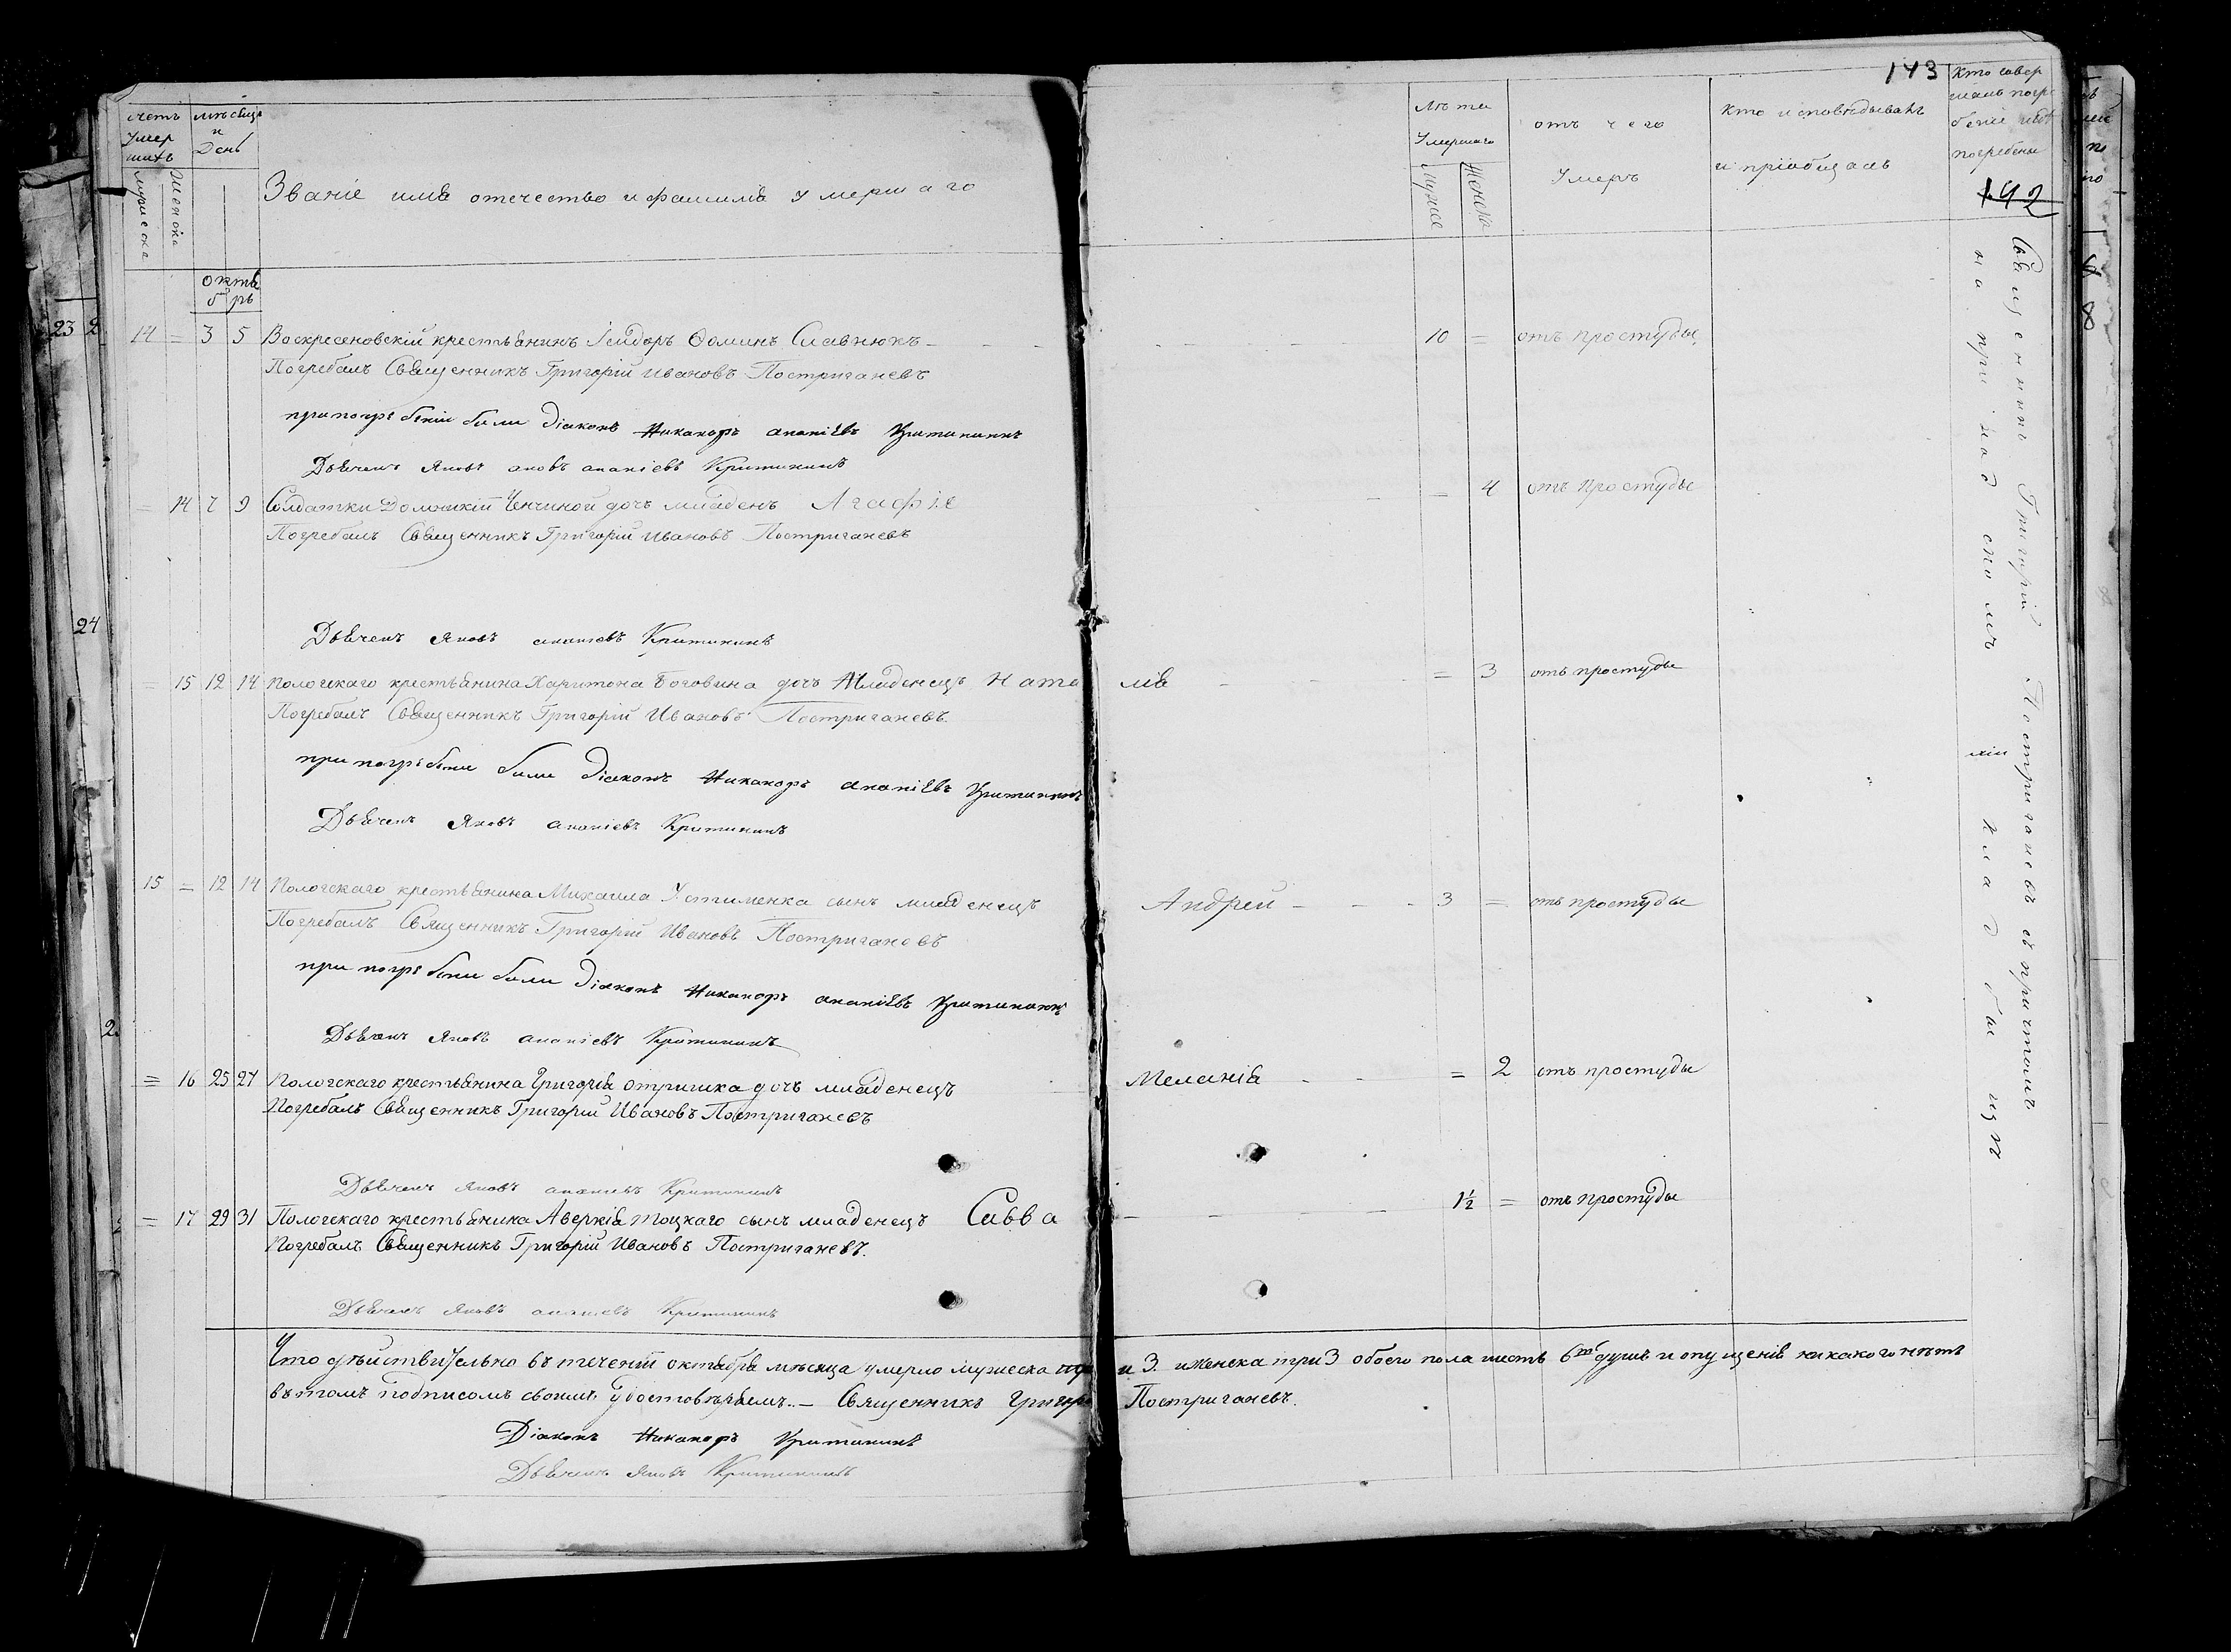 143
счетъ умер шихъ
мѣсяцъ и день
Званіе имя отечество и фамилія умершаго
Лѣта умершаго
отъ чего умеръ
кто исповѣдывалъ и пріобщалъ
кто совер шалъ погре беніе и гдѣ погребены
142
мужеска
женска
муже
женска
октя брь
14 = 3 5 Воскресеновскій крестьянинъ Ісидоръ Ѳоминъ Славнюкъ 10 = отъ простуды
Погребалъ Священникъ Григорій Ивановъ Постриганевъ
при погребеніи были Діаконъ Никаноръ ананіевъ Критининъ
Дьячекъ Яковъ ановъ ананіевъ Критининъ
= 14 7 9 Солдатки Доложкій Ченчиной дочъ младенъ Агафія = 4 отъ простуды
Погребалъ Священникъ Григорій Ивановъ Постриганевъ
Дьячекъ Яковъ ананіевъ Критининъ
= 15 12 14 Пологскаго крестьянина Харитона Боговина дочъ Младенецъ Наталія = 3 отъ простуды
Погребалъ Священникъ Григорій Ивановъ Постриганевъ.
при погребени были Діаконъ Никаноръ ананіевъ Критининъ
Дьячекъ Яковъ ананіевъ Критининъ
15 = 12 14 Пологскаго крестьянина Михаила Устименка сынъ младенецъ Андрей 3 = отъ простуды
Погребалъ Священникъ Григорій Ивановъ Постриганевъ
при погребени были Діаконъ Никаноръ ананіевъ Критининъ
Дьячекъ Яковъ ананіевъ Критининъ
= 16 25 27 Пологскаго крестьянина Григорія отришка дочъ младенецъ Меланія = 2 отъ простуды
Погребалъ Священникъ Григорій Ивановъ Постриганевъ
Дьячекъ Яковъ ананіевъ Критининъ
= 17 29 31 Пологскаго крестьянина Аверкія тоцкаго сынъ младенецъ Савва 1½ = отъ простуды
Погребалъ Священникъ Григорій Ивановъ Постриганевъ.
Дьячекъ Яковъ ананіевъ Критининъ
Что дѣйствительно въ теченіи октября мѣсяца умерло мужеска три 3. и женска три 3 обоего пола шесть 6ть душъ и опущенія никакого нѣтъ
въ томъ подписомъ своимъ удостовѣряемъ. — Священникъ Григорій Постриганевъ.
Діаконъ Никаноръ Критининъ
Дьячекъ Яковъ Критининъ
Священникъ Григорій Постриганевъ съ причтомъ
на приходском кладби
23 2
24